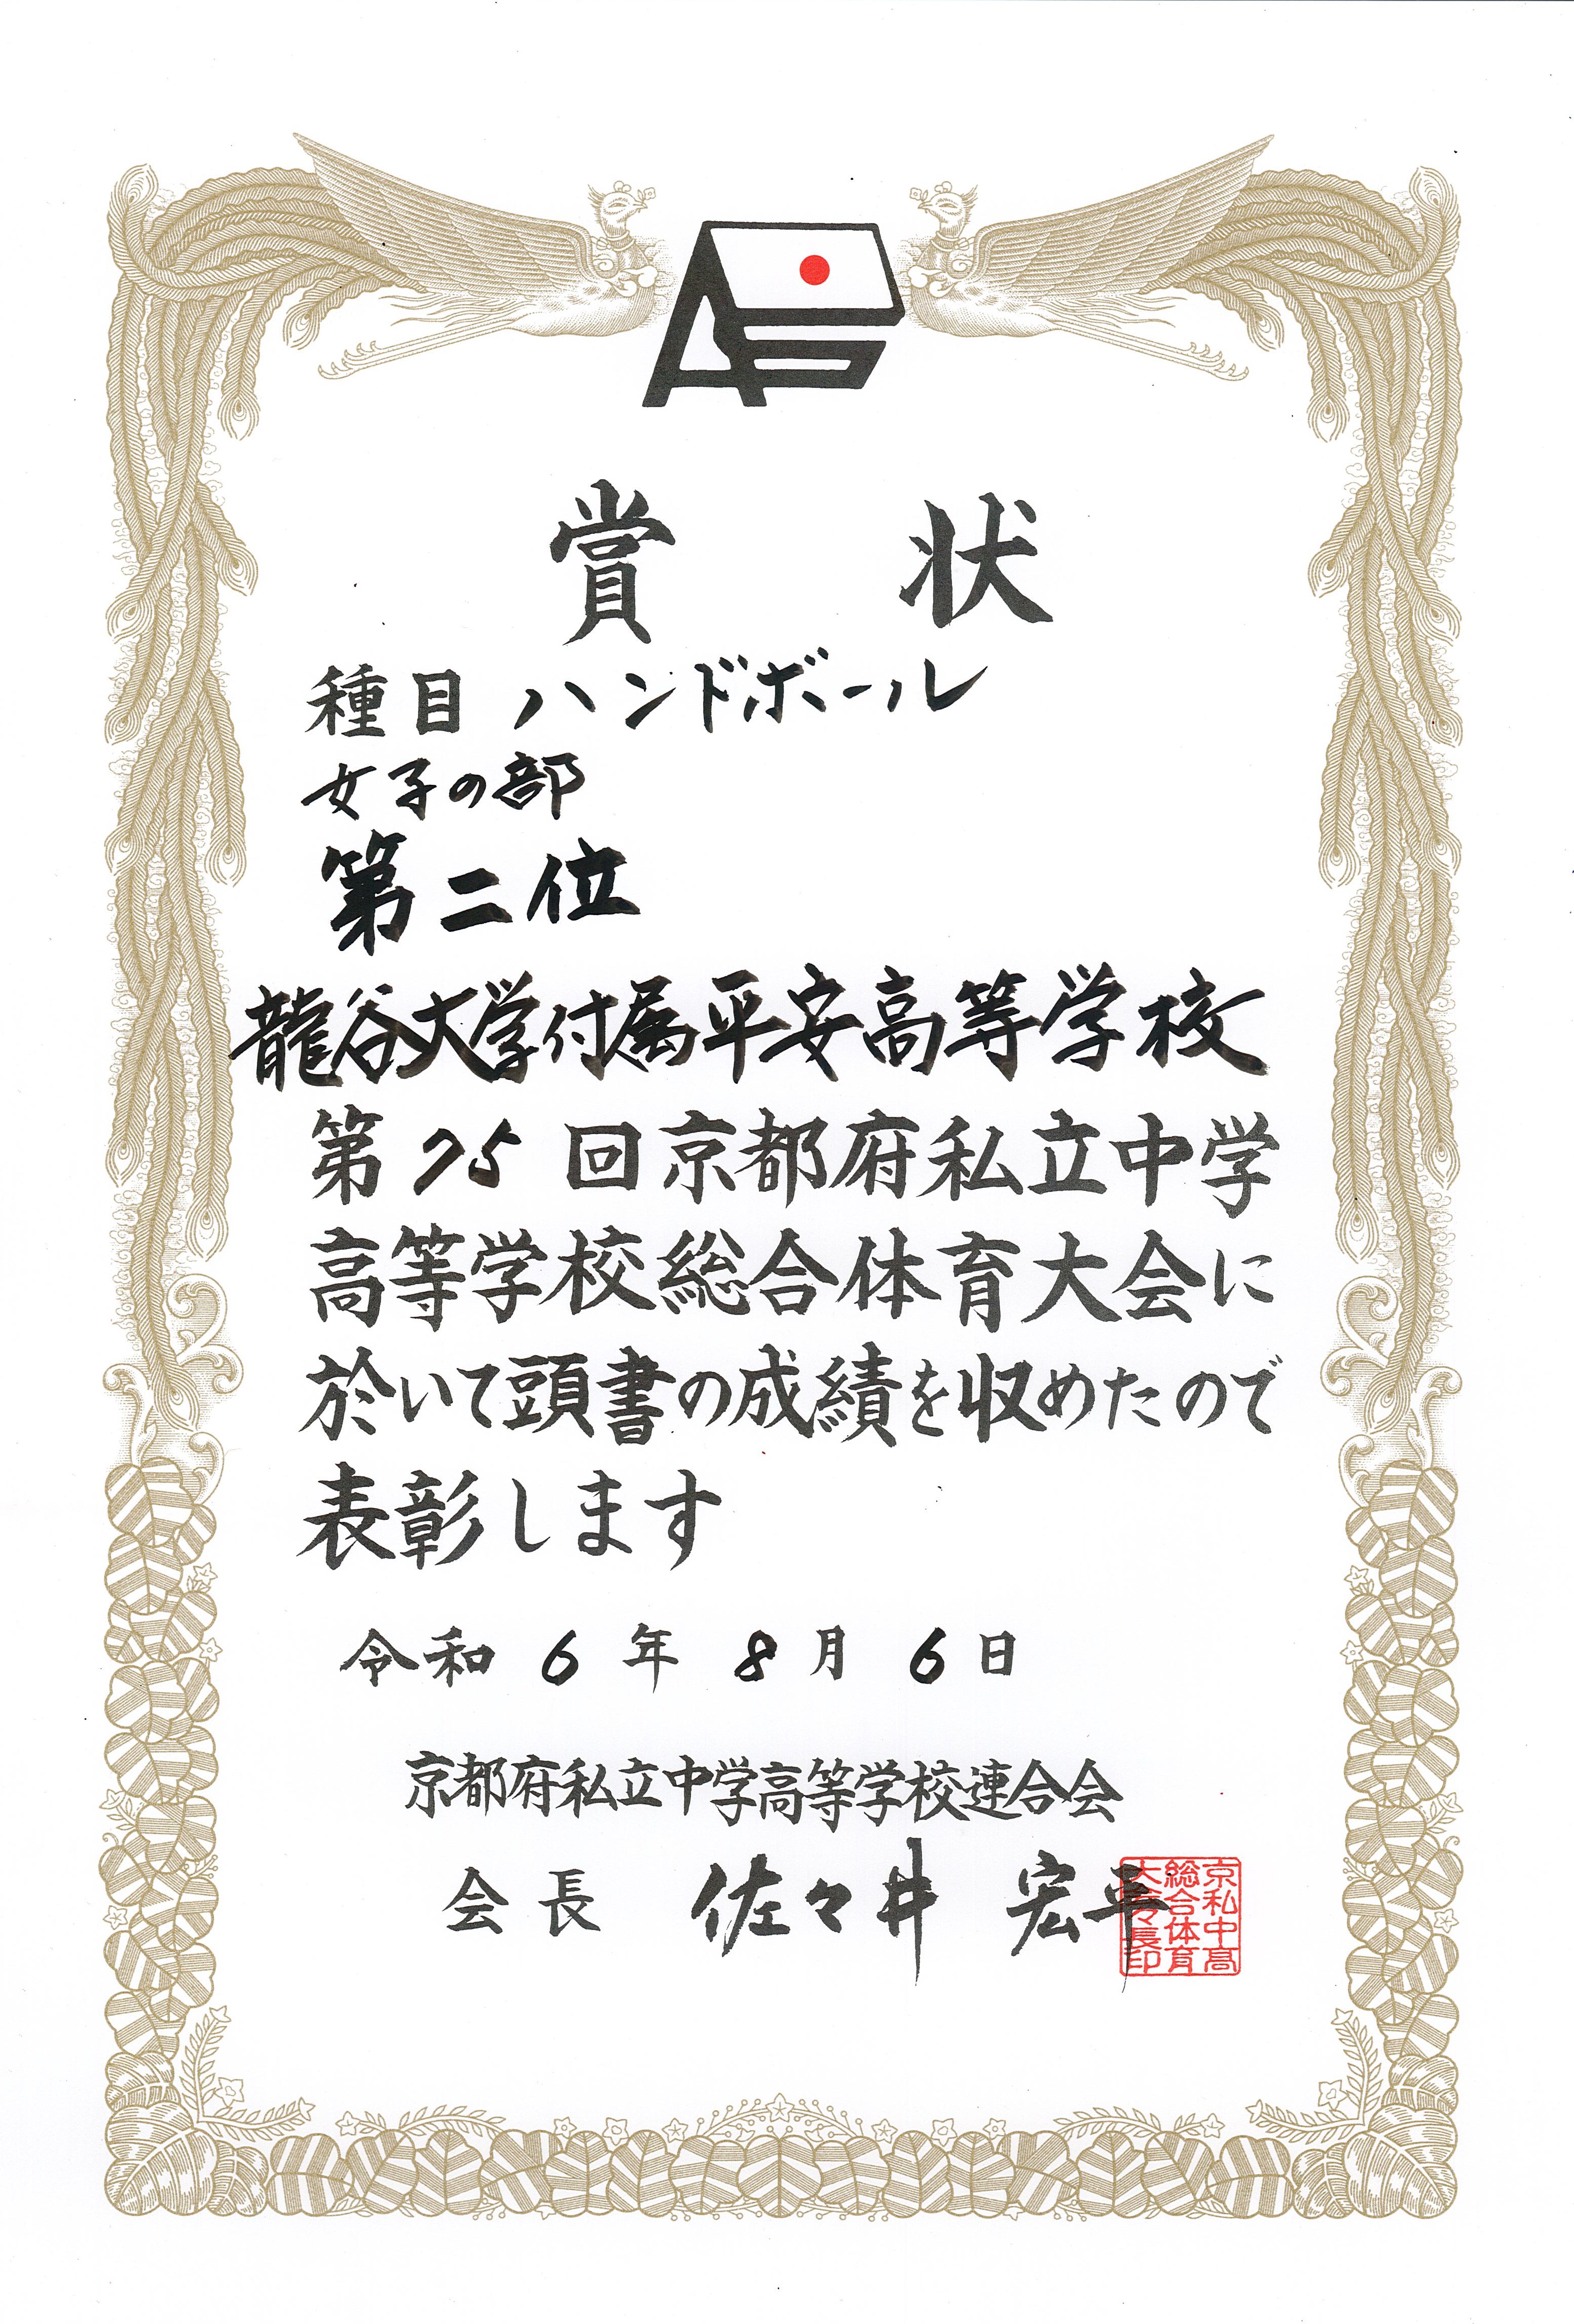 賞状
種目 ハンドボール
女子の部
第二位
龍谷大学付属平安高等学校
第75回京都府私立中学
高等学校総合体育大会に
於いて頭書の成績を収めたので
表彰します
令和6年8月6日
京都府私立中学高等学校連合会
会長 佐々井 宏平
京私中高
総合体育
大会長印